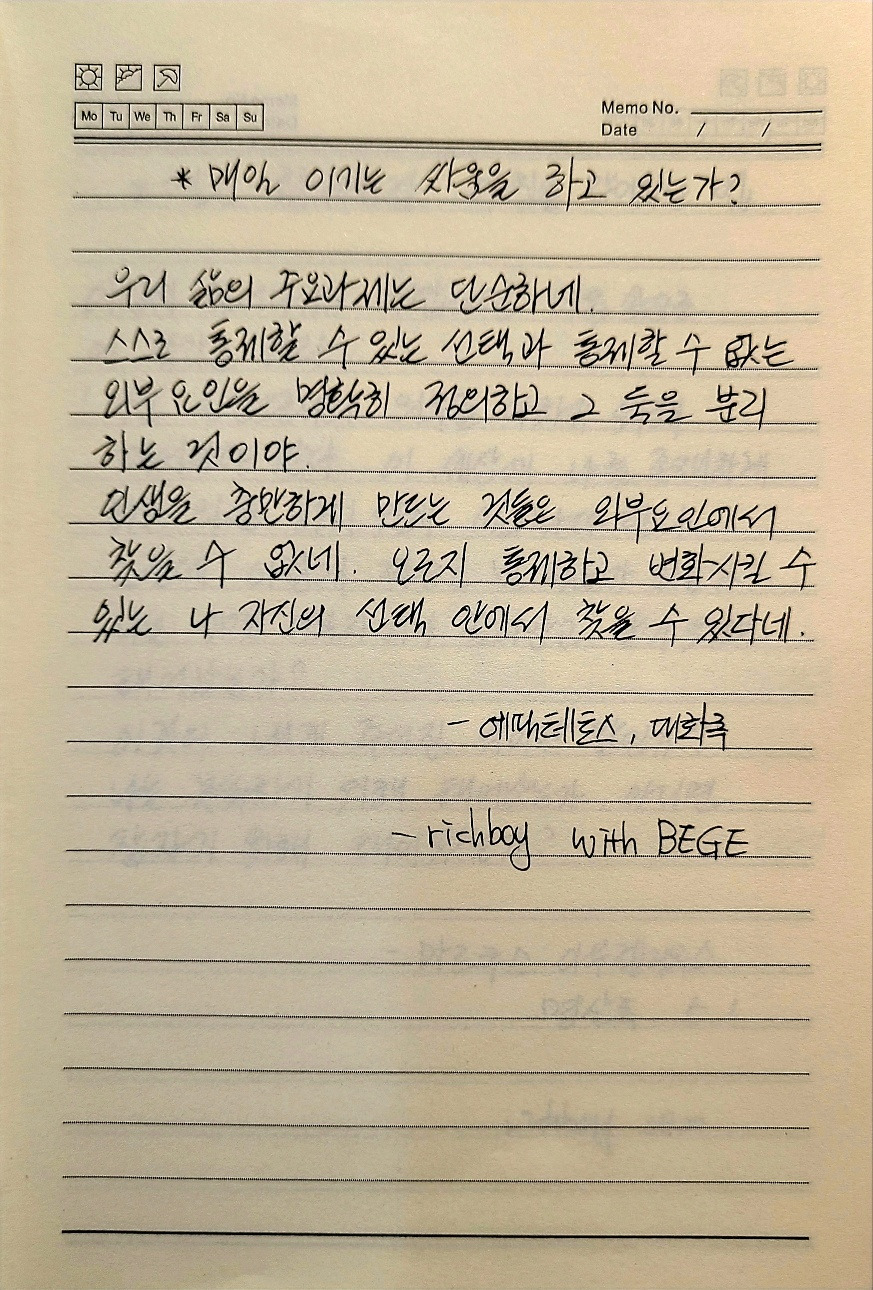 Mo Tu We Th Fr Sa Su
Memo No.
Date / /
* 매일 이기는 싸움을 하고 있는가?
우리 삶의 주요과제는 단순하네.
스스로 통제할 수 있는 선택과 통제할 수 없는
외부 요인을 명확히 정의하고 그 둘을 분리
하는 것이야.
인생을 충만하게 만드는 것들은 외부요인에서
찾을 수 없네. 오로지 통제하고 변화시킬 수
있는 나 자신의 선택 안에서 찾을 수 있다네.
- 에픽테토스, 대화록
- richboy with BEGE